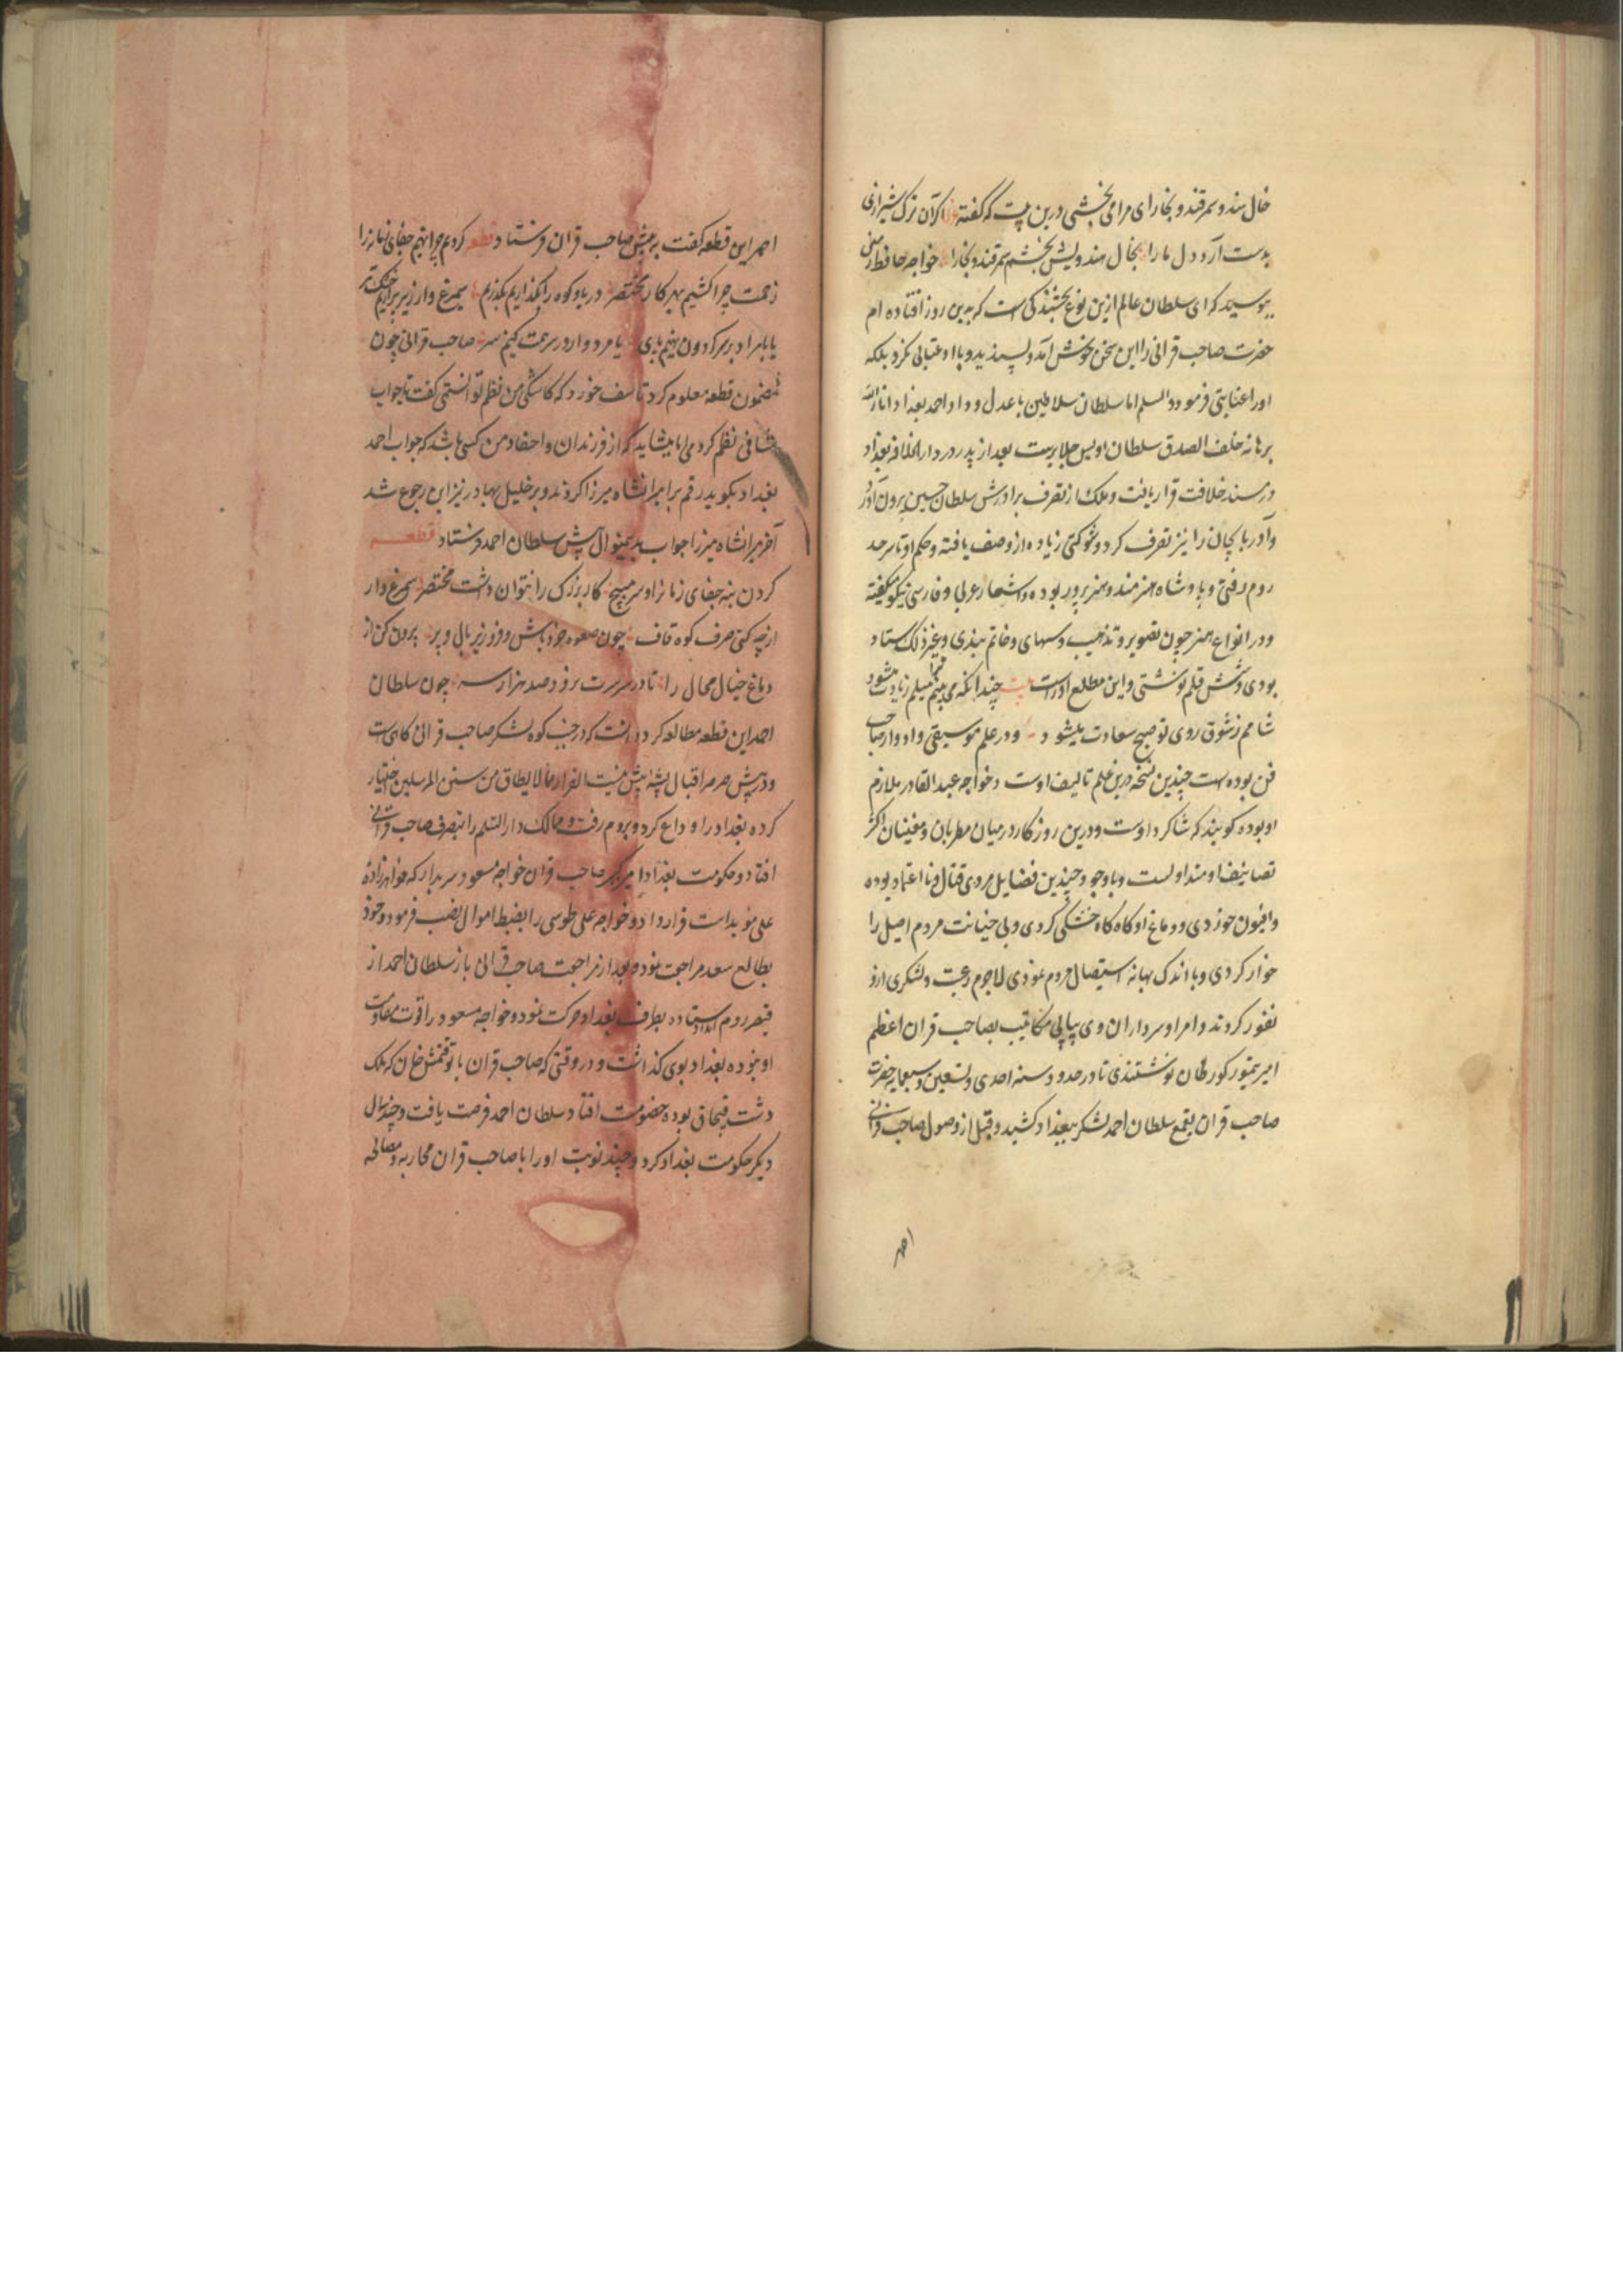 خال هندو سمرقند و بخارای مرا می بخشی درین بیت که گفته اگر آن ترک شیرازی
بدست آرد دل ما را بخال هندویش بخشم سمرقند و بخارا را خواجه حافظ زمین
ببوسید که ای سلطان عالم ازین نوع بخشندکی است که بدین روز افتاده ام
حضرت صاحب قرانی را این سخن خوش آمد و پسندید و با او عتابی نکرد بلکه
او را عنایتی فرمود اما سلطان سلاطین با عدل و داد احمد بغداد انار الله
برهانه خلف الصدق سلطان اویس جلایرست بعد از پدر در دار الخلافه بغداد
در مسند خلافت قرار یافت و ملک از تصرف برادرش سلطان حسین برون آورد
و آذربایجان را نیز تصرف کرد و شوکتی زیاده از وصف یافته و حکم او تا سرحد
روم رفتی و پادشاه هنرمند و هنرپرور بوده و اشعار عربی و فارسی نیکو میگفته
و در انواع هنر چون تصویر و تذهیب و سهامی و خاتم بندی و غیر ذلک استاد
بودی و شش قلم نوشتی و این مطلع اوراست بیت چندانکه می بینم ترا میلم زیادت میشود
شامم ز شوق روی تو صبح سعادت میشود و در علم موسیقی و ادوار صاحب
فن بوده است چندین نسخه درین علم تالیف اوست و خواجه عبد القادر ملازم
او بوده کویند که شاکرد اوست و درین روزکار در میان مطربان و مغنیان اکثر
تصانیف او متداولست و با وجود چندین فضایل مردی قتال و نا اعتماد بوده
و افیون خوردی و دماغ او کاه کاه خشکی کردی و بی خیانت مردم اصیل را
خوار کردی و با اندک بهانه استیصال مردم نمودی لاجرم رعیت و لشکری ازو
نفور کردند و امرا و سرداران وی پیاپی مکاتیب بصاحب قران اعظم
امیر تیمور کورکان نوشتندی تا در حدود سنه احدی و تسعین و سبعمایه حضرت
صاحب قران بقمع سلطان احمد لشکر ببغداد کشید و قبل از وصول صاحب قرانی
احمد
احمد این قطعه کفت به پیش صاحب قران فرستاد قطعه کردن چرا نهیم جفای زمانه را
زحمت چرا کشیم بهر کار مختصر دریا و کوه را بگذاریم بگذریم سیمرغ وار زیر پر آریم خشک و تر
یا بامراد بر سر کردون نهیم پای یا مردوار در سر همت کنیم سر صاحب قرانی چون
مضمون قطعه معلوم کرد تاسف خورد که کاشکی من نظم توانستمی کفت تا جواب
شافی نظم کردمی اما میشاید که از فرزندان و احفاد من کسی باشد که جواب احمد
بغداد بکوید رقم بر امیرانشاه میرزا کردند و بر خلیل بهادر نیز این رجوع شد
آخر میرانشاه میرزا جواب بدینمنوال پیش سلطان احمد فرستاد قطعه
کردن بنه جفای زمان را و سر مپیچ کار بزرک را نتوان داشت مختصر سیمرغ وار
از چه کنی صرف کوه قاف چون صعوه خورد باش و فرو ریز بال و پر برون کن از
دماغ خیال محال را تا در سر سرت نرود صد هزار سر چون سلطان
احمد این قطعه مطالعه کرد دانست که در جنب کوه لشکر صاحب قرانی کاهیست
و در پیش صرصر اقبال پشه بیش نیست الفرار مما لا یطاق من سنن المرسلین اختیار
کرده بغداد را وداع کرد و بروم رفت و ممالک دار السلم را بتصرف صاحب قرانی
افتاد و حکومت بغداد امیر کبیر صاحب قران خواجه مسعود سربدار که خواهرزاده
علی مؤیدست قرار داد و خواجه علی طوسی را بضبط اموال نصب فرمود و خود
بطالع سعد مراجعت نمود و بعد از مراجعت صاحب قرانی باز سلطان احمد از
قیصر روم امداد ستاده بطرف بغداد حرکت نمود و خواجه مسعود را قوت مقاومت
او نبوده بغداد بوی کذاشت و در وقتی که صاحب قران با توقتمش خان که ملک
دشت قبچاق بوده خصومت افتاد سلطان احمد فرصت یافت و چند سال
دیکر حکومت بغداد کرد و چند نوبت او را با صاحب قران محاربه و مصالحه